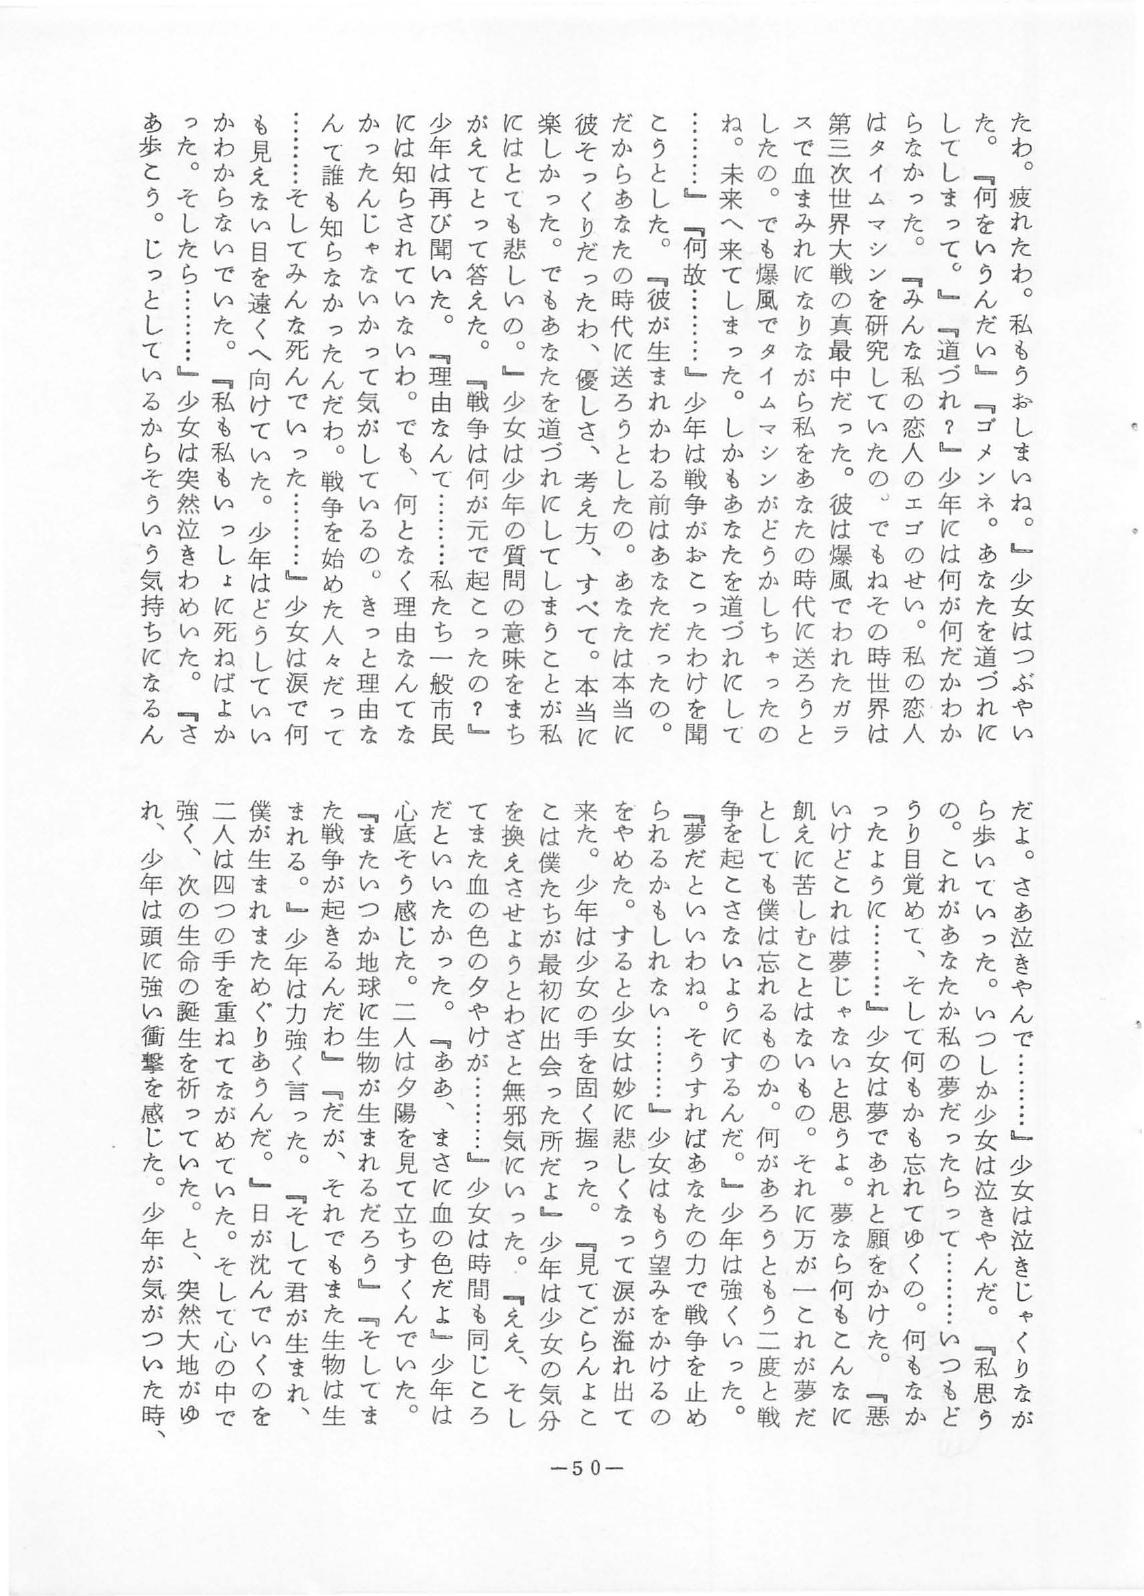 たわ。疲れたわ。私もうおしまいね。』少女はつぶやい
た。『何をいうんだい』『ゴメンネ。あなたを道づれに
してしまって。』『道づれ？』少年には何が何だかわか
らなかった。『みんな私の恋人のエゴのせい。私の恋人
はタイムマシンを研究していたの。でもねその時世界は
第三次世界大戦の真最中だった。彼は爆風でわれたガラ
スで血まみれになりながら私をあなたの時代に送ろうと
したの。でも爆風でタイムマシンがどうかしちゃったの
ね。未来へ来てしまった。しかもあなたを道づれにして
………』『何故………』少年は戦争がおこったわけを聞
こうとした。『彼が生まれかわる前はあなただったの。
だからあなたの時代に送ろうとしたの。あなたは本当に
彼そっくりだったわ、優しさ、考え方、すべて。本当に
楽しかった。でもあなたを道づれにしてしまうことが私
にはとても悲しいの。』少女は少年の質問の意味をまち
がえてとって答えた。『戦争は何が元で起こったの？』
少年は再び聞いた。『理由なんて………私たち一般市民
には知らされていないわ。でも、何となく理由なんてな
かったんじゃないかって気がしているの。きっと理由な
んて誰も知らなかったんだわ。戦争を始めた人々だって
………そしてみんな死んでいった………』少女は涙で何
も見えない目を遠くへ向けていた。少年はどうしていい
かわからないでいた。『私も私もいっしょに死ねばよか
った。そしたら………』少女は突然泣きわめいた。『さ
あ歩こう。じっとしているからそういう気持ちになるん
だよ。さあ泣きやんで………』少女は泣きじゃくりなが
ら歩いていった。いつしか少女は泣きやんだ。『私思う
の。これがあなたか私の夢だったらって………いつもど
うり目覚めて、そして何もかも忘れてゆくの。何もなか
ったように………』少女は夢であれと願をかけた。『悪
いけどこれは夢じゃないと思うよ。夢なら何もこんなに
飢えに苦しむことはないもの。それに万が一これが夢だ
としても僕は忘れるものか。何があろうともう二度と戦
争を起こさないようにするんだ。』少年は強くいった。
『夢だといいわね。そうすればあなたの力で戦争を止め
られるかもしれない………』少女はもう望みをかけるの
をやめた。すると少女は妙に悲しくなって涙が溢れ出て
来た。少年は少女の手を固く握った。『見てごらんよこ
こは僕たちが最初に出会った所だよ』少年は少女の気分
を換えさせようとわざと無邪気にいった。『ええ、そし
てまた血の色の夕やけが………』少女は時間も同じころ
だといいたかった。『ああ、まさに血の色だよ』少年は
心底そう感じた。二人は夕陽を見て立ちすくんでいた。
『またいつか地球に生物が生まれるだろう』『そしてま
た戦争が起きるんだわ』『だが、それでもまた生物は生
まれる。』少年は力強く言った。『そして君が生まれ、
僕が生まれまためぐりあうんだ。』日が沈んでいくのを
二人は四つの手を重ねてながめていた。そして心の中で
強く、次の生命の誕生を祈っていた。と、突然大地がゆ
れ、少年は頭に強い衝撃を感じた。少年が気がついた時、
—50—